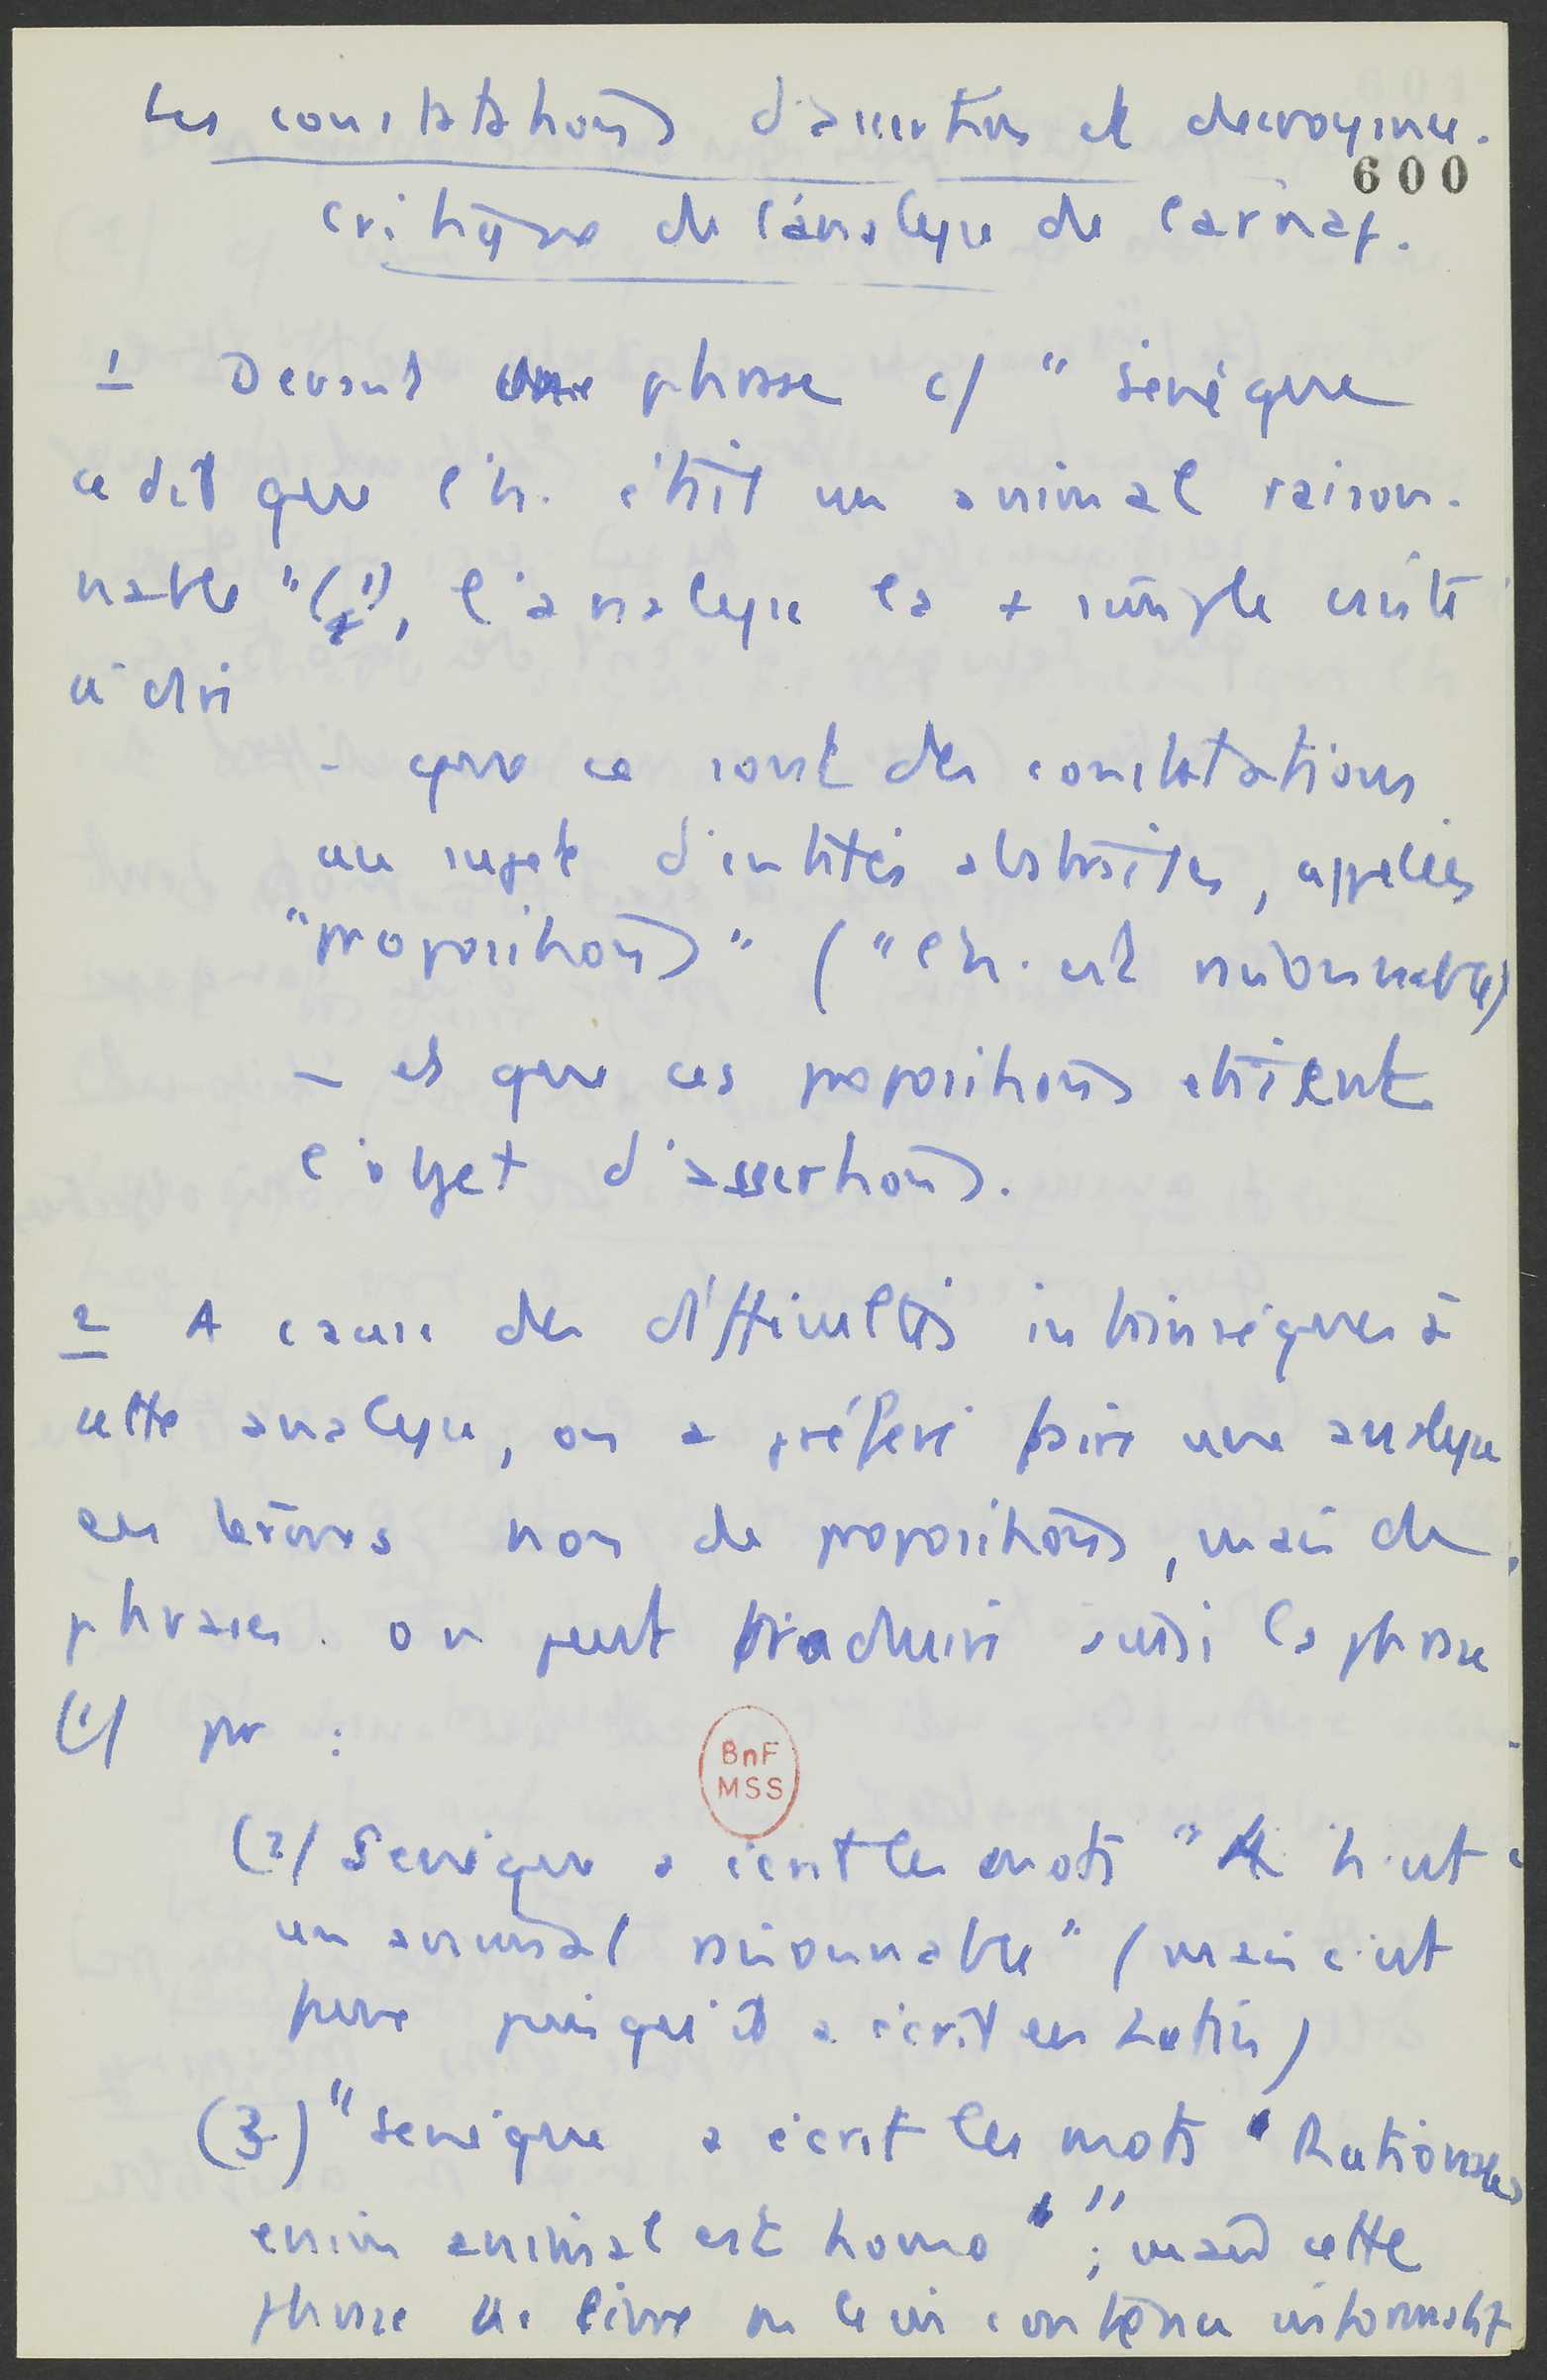 Les constatations d'assertions et de croyance.
600
Critique de l'analyse de Carnap.
1 Devant une phrase c/ "Sénèque
a dit que l'h. était un animal raison-
nable" (1), l'analyse la + simple
à dire
- que ce sont des constatations
au sujet d'entités abstraites, appelées
"propositions" ("l'h. est raisonnable)
- et que ces propositions étaient
l'objet d'assertions.
2 A cause des difficultés intrinsèques à
cette analyse, on a préféré faire une analyse
en termes non de propositions, mais de
phrases. On peut traduire aussi la phrase
(1) par :
BnF
MSS
(2) Sénèque a écrit les mots "L'h. est
un animal raisonnable" (mais c'est
faux puisqu'il a écrit en Latin)
(3) "Sénèque a écrit les mots "Rationale
enim animal est homo" " ; mais cette
phrase ne livre en le contenu informatif